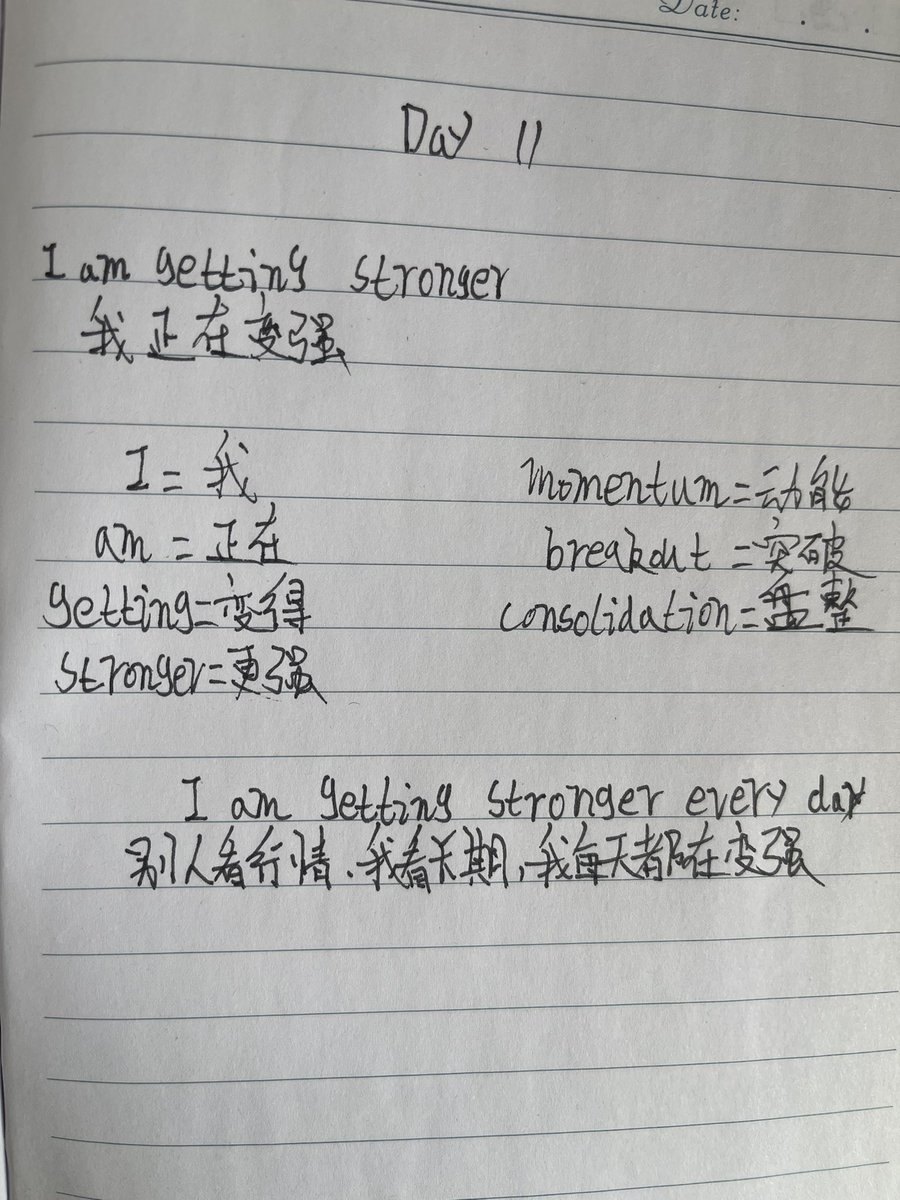 Date:
Day 11
I am getting stronger
我正在变强
I = 我
am = 正在
getting=变得
stronger=更强
momentum=动能
breakout =突破
consolidation=盘整
I am getting stronger every day
别人看行情.我看长期,我每天都在变强